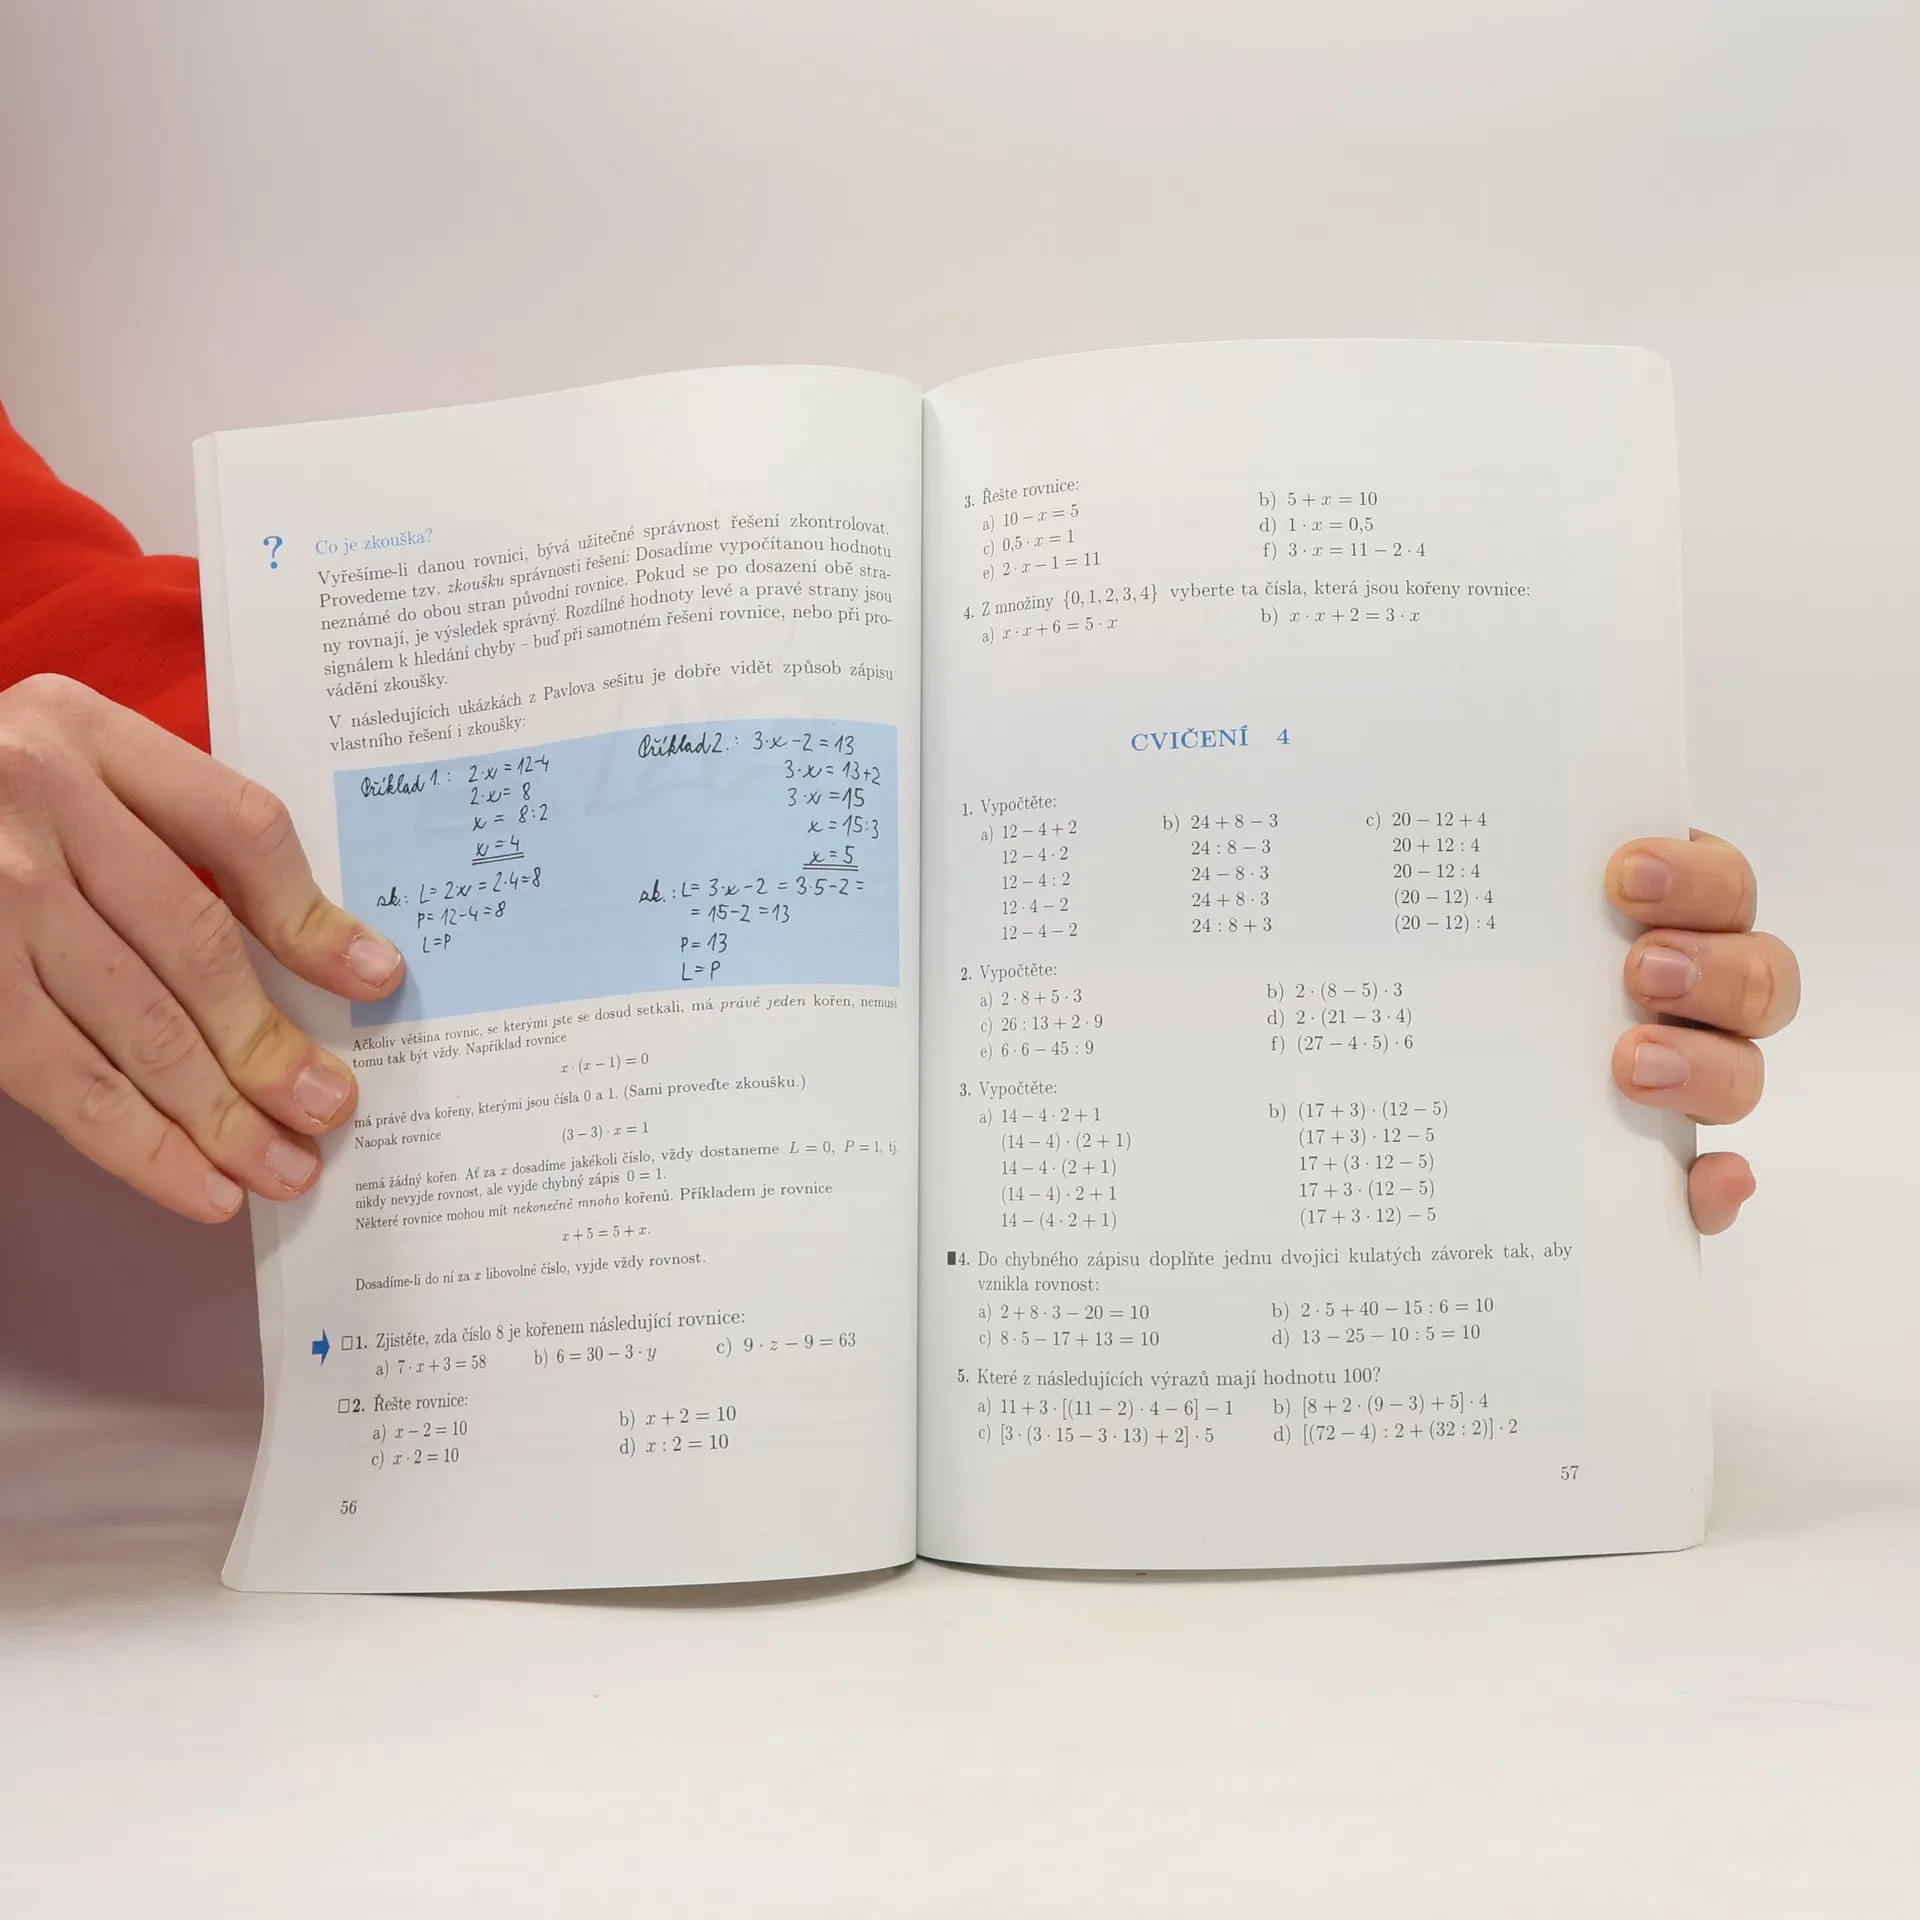 ?
Co je zkouška?
Vyřešíme-li danou rovnici, bývá užitečné správnost řešení zkontrolovat.
Provedeme tzv. zkoušku správnosti řešení: Dosadíme vypočítanou hodnotu
neznámé do obou stran původní rovnice. Pokud se po dosazení obě stra-
ny rovnají, je výsledek správný. Rozdílné hodnoty levé a pravé strany jsou
signálem k hledání chyby – buď při samotném řešení rovnice, nebo při pro-
vádění zkoušky.
V následujících ukázkách z Pavlova sešitu je dobře vidět způsob zápisu
vlastního řešení i zkoušky:
Příklad 1.: 2·x = 12-4
2·x = 8
x = 8:2
x = 4
zk.: L = 2x = 2·4 = 8
P = 12-4 = 8
L = P
Příklad 2.: 3·x - 2 = 13
3·x = 13+2
3·x = 15
x = 15:3
x = 5
zk.: L = 3·x - 2 = 3·5-2 =
= 15-2 = 13
P = 13
L = P
Ačkoliv většina rovnic, se kterými jste se dosud setkali, má právě jeden kořen, nemusí
tomu tak být vždy. Například rovnice
x · (x – 1) = 0
má právě dva kořeny, kterými jsou čísla 0 a 1. (Sami proveďte zkoušku.)
Naopak rovnice
(3 – 3) · x = 1
nemá žádný kořen. Ať za x dosadíme jakékoli číslo, vždy dostaneme L = 0, P = 1, tj.
nikdy nevyjde rovnost, ale vyjde chybný zápis 0 = 1.
Některé rovnice mohou mít nekonečně mnoho kořenů. Příkladem je rovnice
x + 5 = 5 + x.
Dosadíme-li do ní za x libovolné číslo, vyjde vždy rovnost.
□1. Zjistěte, zda číslo 8 je kořenem následující rovnice:
a) 7 · x + 3 = 58 b) 6 = 30 – 3 · y c) 9 · z – 9 = 63
□2. Řešte rovnice:
a) x – 2 = 10 b) x + 2 = 10
c) x · 2 = 10 d) x : 2 = 10
56
3. Řešte rovnice:
a) 10 – x = 5 b) 5 + x = 10
c) 0,5 · x = 1 d) 1 · x = 0,5
e) 2 · x – 1 = 11 f) 3 · x = 11 – 2 · 4
4. Z množiny {0, 1, 2, 3, 4} vyberte ta čísla, která jsou kořeny rovnice:
a) x · x + 6 = 5 · x b) x · x + 2 = 3 · x
CVIČENÍ 4
1. Vypočtěte:
a) 12 – 4 + 2 b) 24 + 8 – 3 c) 20 – 12 + 4
12 – 4 · 2 24 : 8 – 3 20 + 12 : 4
12 – 4 : 2 24 – 8 · 3 20 – 12 : 4
12 · 4 – 2 24 + 8 · 3 (20 – 12) · 4
12 – 4 – 2 24 : 8 + 3 (20 – 12) : 4
2. Vypočtěte:
a) 2 · 8 + 5 · 3 b) 2 · (8 – 5) · 3
c) 26 : 13 + 2 · 9 d) 2 · (21 – 3 · 4)
e) 6 · 6 – 45 : 9 f) (27 – 4 · 5) · 6
3. Vypočtěte:
a) 14 – 4 · 2 + 1 b) (17 + 3) · (12 – 5)
(14 – 4) · (2 + 1) (17 + 3) · 12 – 5
14 – 4 · (2 + 1) 17 + (3 · 12 – 5)
(14 – 4) · 2 + 1 17 + 3 · (12 – 5)
14 – (4 · 2 + 1) (17 + 3 · 12) – 5
■4. Do chybného zápisu doplňte jednu dvojici kulatých závorek tak, aby
vznikla rovnost:
a) 2 + 8 · 3 – 20 = 10 b) 2 · 5 + 40 – 15 : 6 = 10
c) 8 · 5 – 17 + 13 = 10 d) 13 – 25 – 10 : 5 = 10
5. Které z následujících výrazů mají hodnotu 100?
a) 11 + 3 · [(11 – 2) · 4 – 6] – 1 b) [8 + 2 · (9 – 3) + 5] · 4
c) [3 · (3 · 15 – 3 · 13) + 2] · 5 d) [(72 – 4) : 2 + (32 : 2)] · 2
57